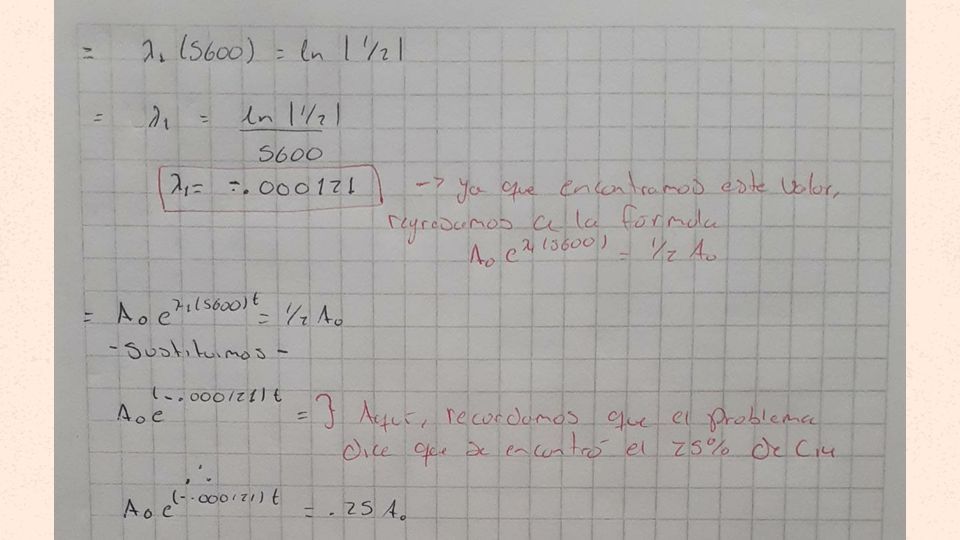 = λ₁ (5600) = ln |1/2|
= λ₁ = ln |1/2| / 5600
λ₁= -.000121 -> ya que encontramos este valor,
regresamos a la formula
A₀ e^λ₁(5600) = 1/2 A₀
= A₀ e^λ₁(5600)t = 1/2 A₀
-Sustituimos-
A₀e^(-.000121)t = } Aquí, recordamos que el problema
dice que se encontró el 25% de C14
∴
A₀ e^(-.000121)t = .25 A₀